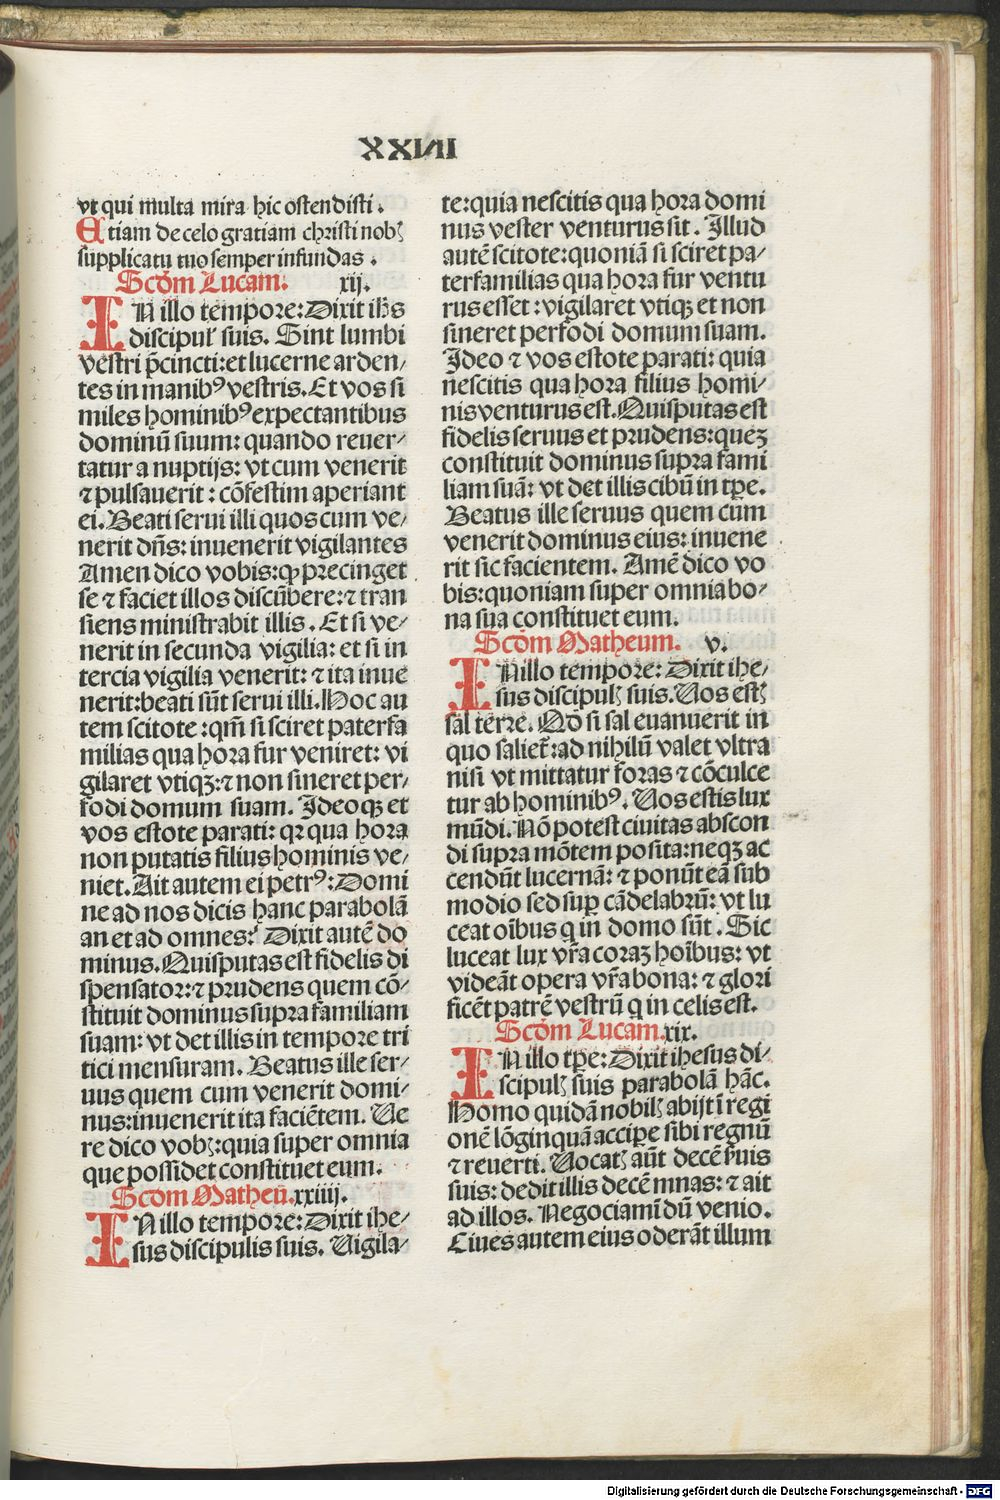 XXIIII
vt qui multa mira hic ostendisti .
Etiam de celo gratiam christi nobꝭ
supplicatu tuo semper infundas .
Scd̄m Lucam. xij.
IN illo tempore: Dixit ih̄s
discipul᷒ suis. Sint lumbi
vestri p̄cincti: et lucerne arden⸗
tes in manib⁹ vestris. Et vos si
miles hominib⁹ expectantibus
dominū suum: quando reuer⸗
tatur a nuptijs: vt cum venerit
⁊ pulsauerit : cōfestim aperiant
ei. Beati serui illi quos cum ve⸗
nerit dn̄s: inuenerit vigilantes
Amen dico vobis: ꝙ precinget
se ⁊ faciet illos discūbere: ⁊ tran
siens ministrabit illis . Et si ve⸗
nerit in secunda vigilia: et si in
tercia vigilia venerit: ⁊ ita inue
nerit: beati sūt serui illi. Hoc au
tem scitote : qm̄ si sciret paterfa
milias qua hora fur veniret: vi
gilaret vtiqꝫ: ⁊ non sineret per⸗
fodi domum suam. Ideoqꝫ et
vos estote parati: qꝛ qua hora
non putatis filius hominis ve⸗
niet. Ait autem ei petr⁹: Domi
ne ad nos dicis hanc parabolā
an et ad omnes: Dixit autē do
minus. Quisputas est fidelis di
spensator: ⁊ prudens quem cō⸗
stituit dominus supra familiam
suam: vt det illis in tempore tri
tici mensuram. Beatus ille ser⸗
uus quem cum venerit domi⸗
nus: inuenerit ita faciētem. Ve
re dico vobꝭ: quia super omnia
que possidet constituet eum.
Scd̄m Matheū. xxiiij.
IN illo tempore: Dixit ihe⸗
sus discipulis suis. Uigila⸗
te: quia nescitis qua hora domi
nus vester venturus sit . Illud
autē scitote: quoniā si sciret pa⸗
terfamilias qua hora fur ventu
rus esset : vigilaret vtiqꝫ et non
sineret perfodi domum suam.
Ideo ⁊ vos estote parati: quia
nescitis qua hora filius homi⸗
nis venturus est. Quisputas est
fidelis seruus et prudens: queꝫ
constituit dominus supra fami
liam suā: vt det illis cibū in tp̄e.
Beatus ille seruus quem cum
venerit dominus eius: inuene
rit sic facientem. Amē dico vo
bis: quoniam super omnia bo⸗
na sua constituet eum.
Scd̄m Matheum. v.
IN illo tempore: Dixit ihe⸗
sus discipulꝭ suis. Uos estꝭ
sal terre. Qd̄ si sal euanuerit in
quo saliet᷑: ad nihilū valet vltra
nisi vt mittatur foras ⁊ cōculce
tur ab hominib⁹. Uos estis lux
mūdi. Nō potest ciuitas abscon
di supra mōtem posita: neqꝫ ac
cendūt lucernā: ⁊ ponūt eā sub
modio sed sup̄ cādelabrū: vt lu
ceat oībus q̄ in domo sūt . Sic
luceat lux vr̄a coraꝫ hoībus: vt
videāt opera vr̄a bona: ⁊ glori
ficēt patrē vestrū q̄ in celis est.
Scd̄m Lucam. xix.
IN illo tp̄e: Dixit ihesus di⸗
scipulꝭ suis parabolā hāc.
Homo quidā nobilꝭ abijt ī regi
onē lōginquā accipe sibi regnū
⁊ reuerti. Uocatꝭ aūt decē ẜuis
suis: dedit illis decē mnas: ⁊ ait
ad illos. Negociamī dū venio.
Ciues autem eius oderāt illum
Digitalisierung gefördert durch die Deutsche Forschungsgemeinschaft - DFG